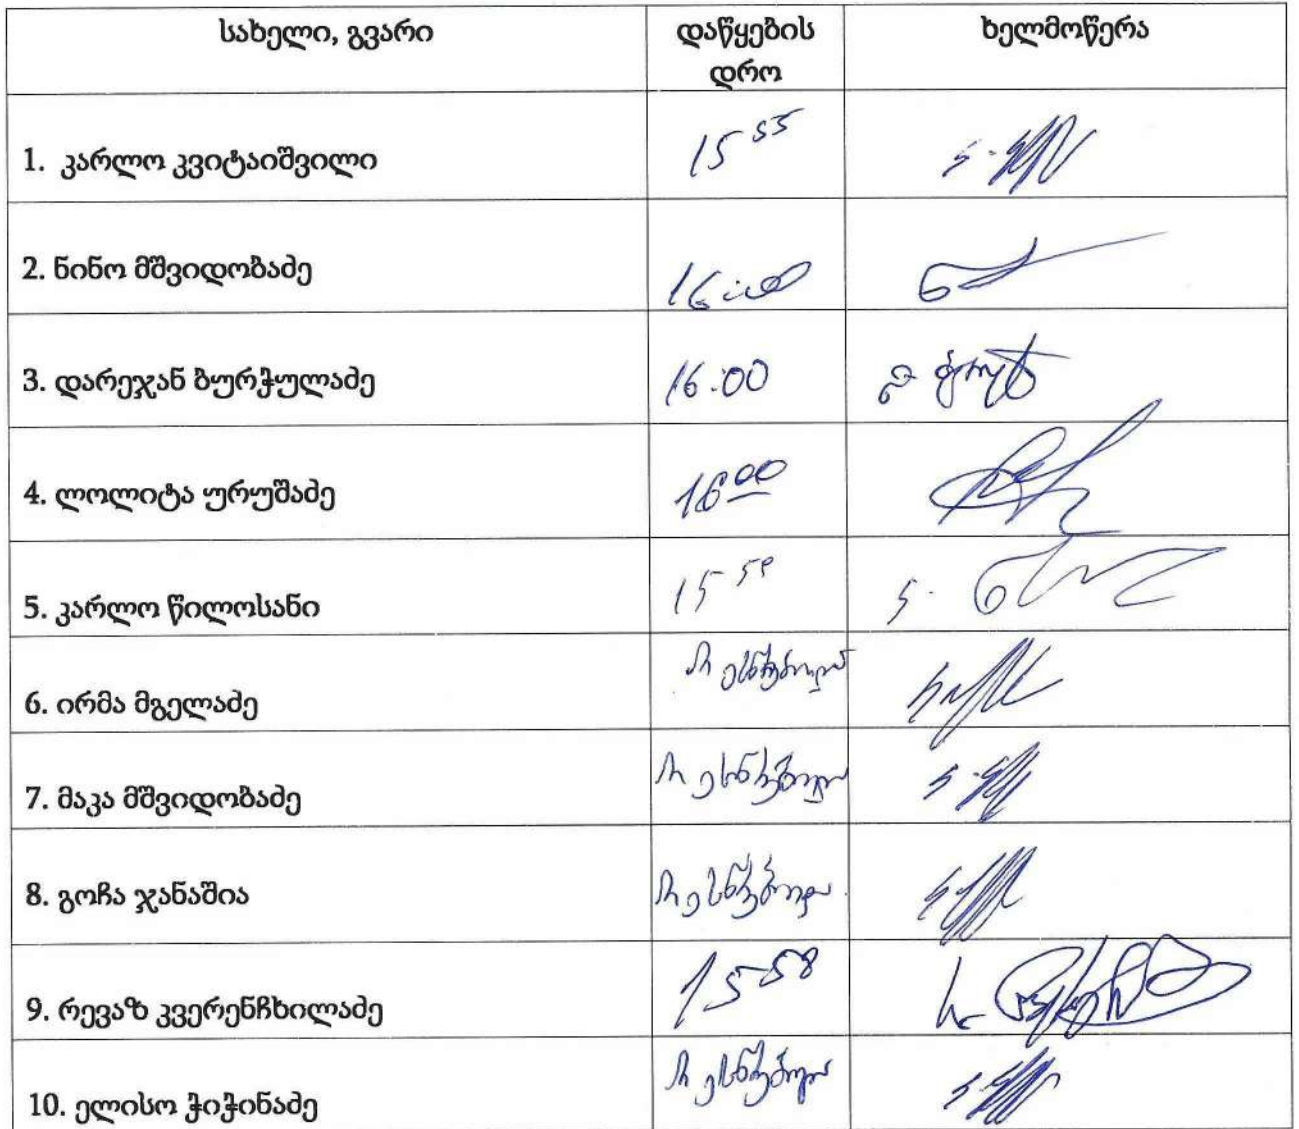 სახელი, გვარი
დაწყების
დრო
ხელმოწერა
1. კარლო კვიტაიშვილი
15 55
2. ნინო მშვიდობაძე
16:00
3. დარეჯან ბურჭულაძე
16:00
4. ლოლიტა ურუშაძე
16 00
5. კარლო წილოსანი
15
6. ირმა მგელაძე
არ ესწრებოდა
7. მაკა მშვიდობაძე
არ ესწრებოდა
8. გოჩა ჯანაშია
არ ესწრებოდა
9. რევაზ კვერენჩხილაძე
15 58
10. ელისო ჭიჭინაძე
არ ესწრებოდა